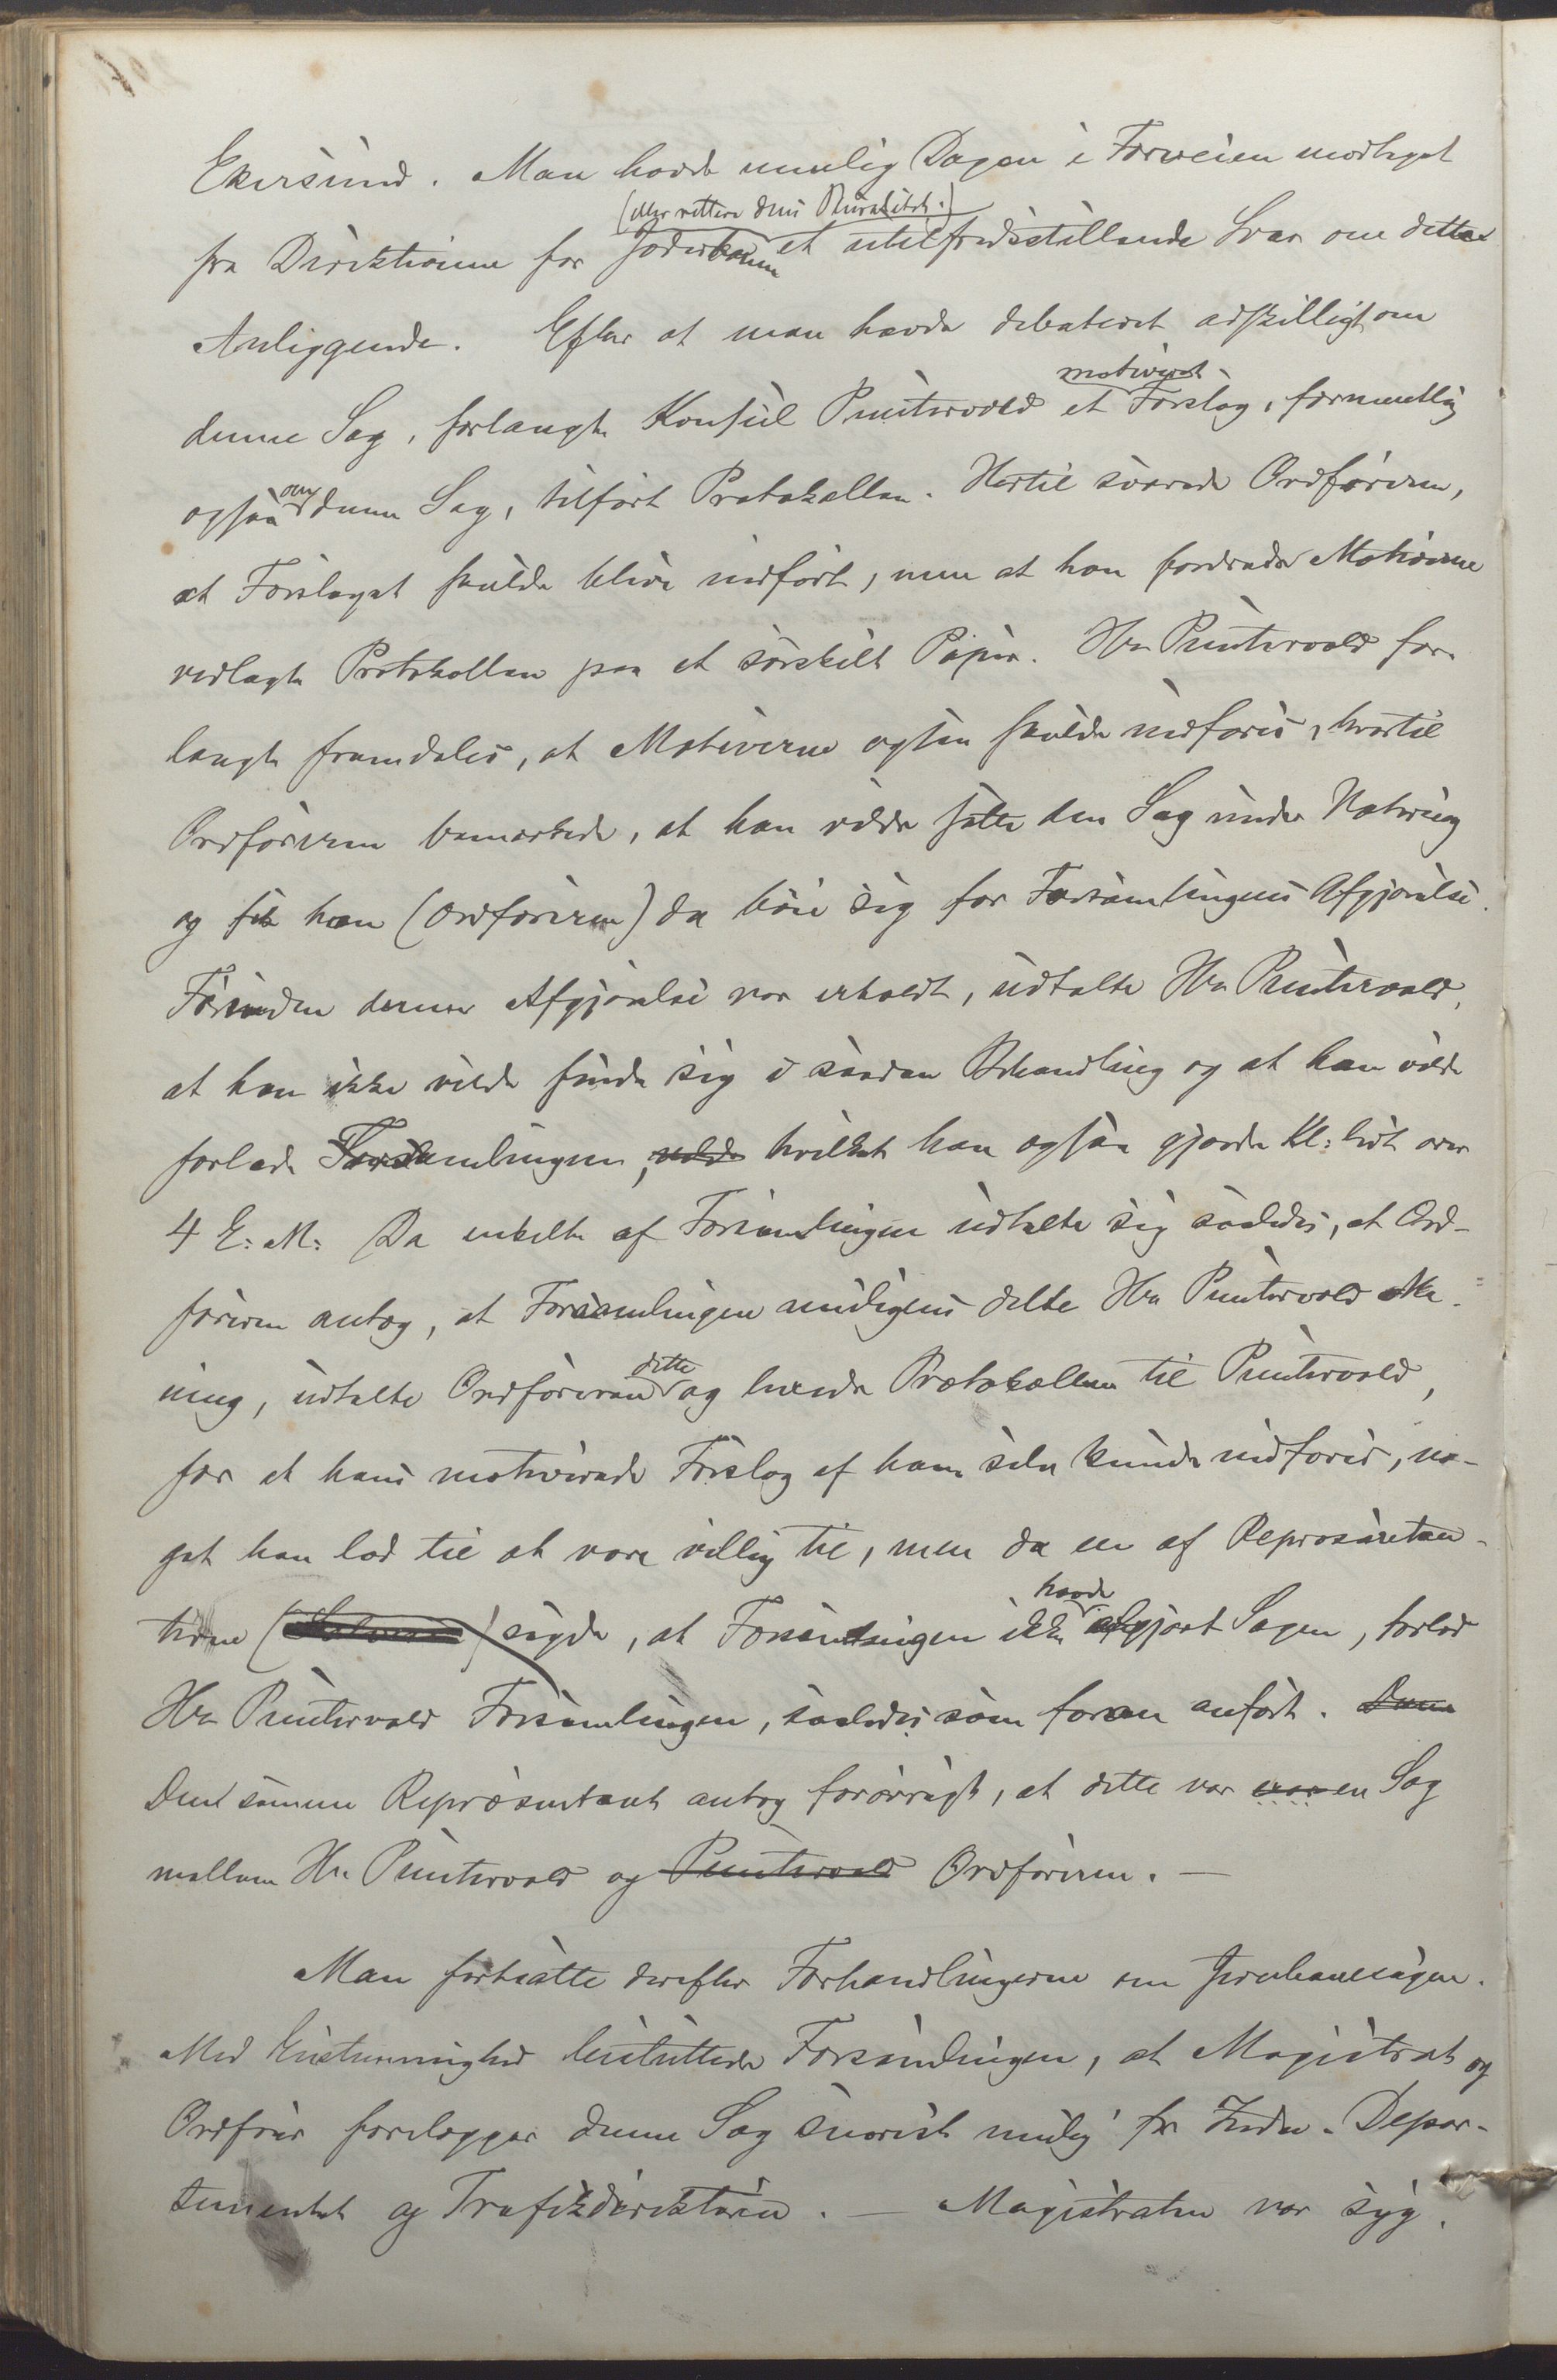 Ekersund. Man havde nemlig Dagen i Forveien modtaget
(eller rettere dens Pluralitet.)
fra Direktionen for Jæderbanen et utilfredsstillende Svar om dette
Anliggende. Efter at man havde debateret adskilligt om
motiveret
denne Sag, forlangte Konsul Puntervold et Forslag, formentlig
om
ogsaa denne Sag, tilført Protokollen. Hertil svarede Ordføreren,
at Forslaget skulde blive indført, men at han fordrede Motiverne
vedlagte Protokollen paa et særskilt Papir. Hr. Puntervold for-
langte fremdeles, at Motiverne ogsaa skulde indføres, hvortil
Ordføreren bemærkede, at han vilde sætte den Sag under Votering
og fik han (Ordføreren) da bøie sig for Forsamlingens Afgjørelse.
Forinden denne Afgjørelse var erholdt, udtalte Hr. Puntervold,
at han ikke vilde finde sig i saadan Behandling og at han vilde
forlade Forsamlingen, hvilket han ogsaa gjorde Kl: lidt over
4 E: M: Da enkelte af Forsamlingen udtalte sig saaledes, at Ord-
føreren antog, at Forsamlingen muligens delte Hr. Puntervold Me-
dette
ning, udtalte Ordføreren og levede Protokollen til Puntervold,
for at hans motiverede Forslag af ham selv kunde indføres, no-
get han lod til at være villig til, men da en af Repræsentan-
havde
terne ( ) sagde, at Forsamlingen ikke afgjort Sagen, forlod
Hr. Puntervold Forsamlingen, saaledes som foran anført. Denne
Den samme Repræsentant antog forøvrigt, at dette var en Sag
mellem Hr. Puntervold og Puntervold Ordføreren. —
Man fortsatte derefter Forhandlingerne om Jernbanesagen.
Med Enstemmighed besluttede Forsamlingen, at Magistrat og
Ordfører forelægger denne Sag snarest mulig for Indre-Depar-
tementet og Trafikdirektøren. — Magistraten var syg.